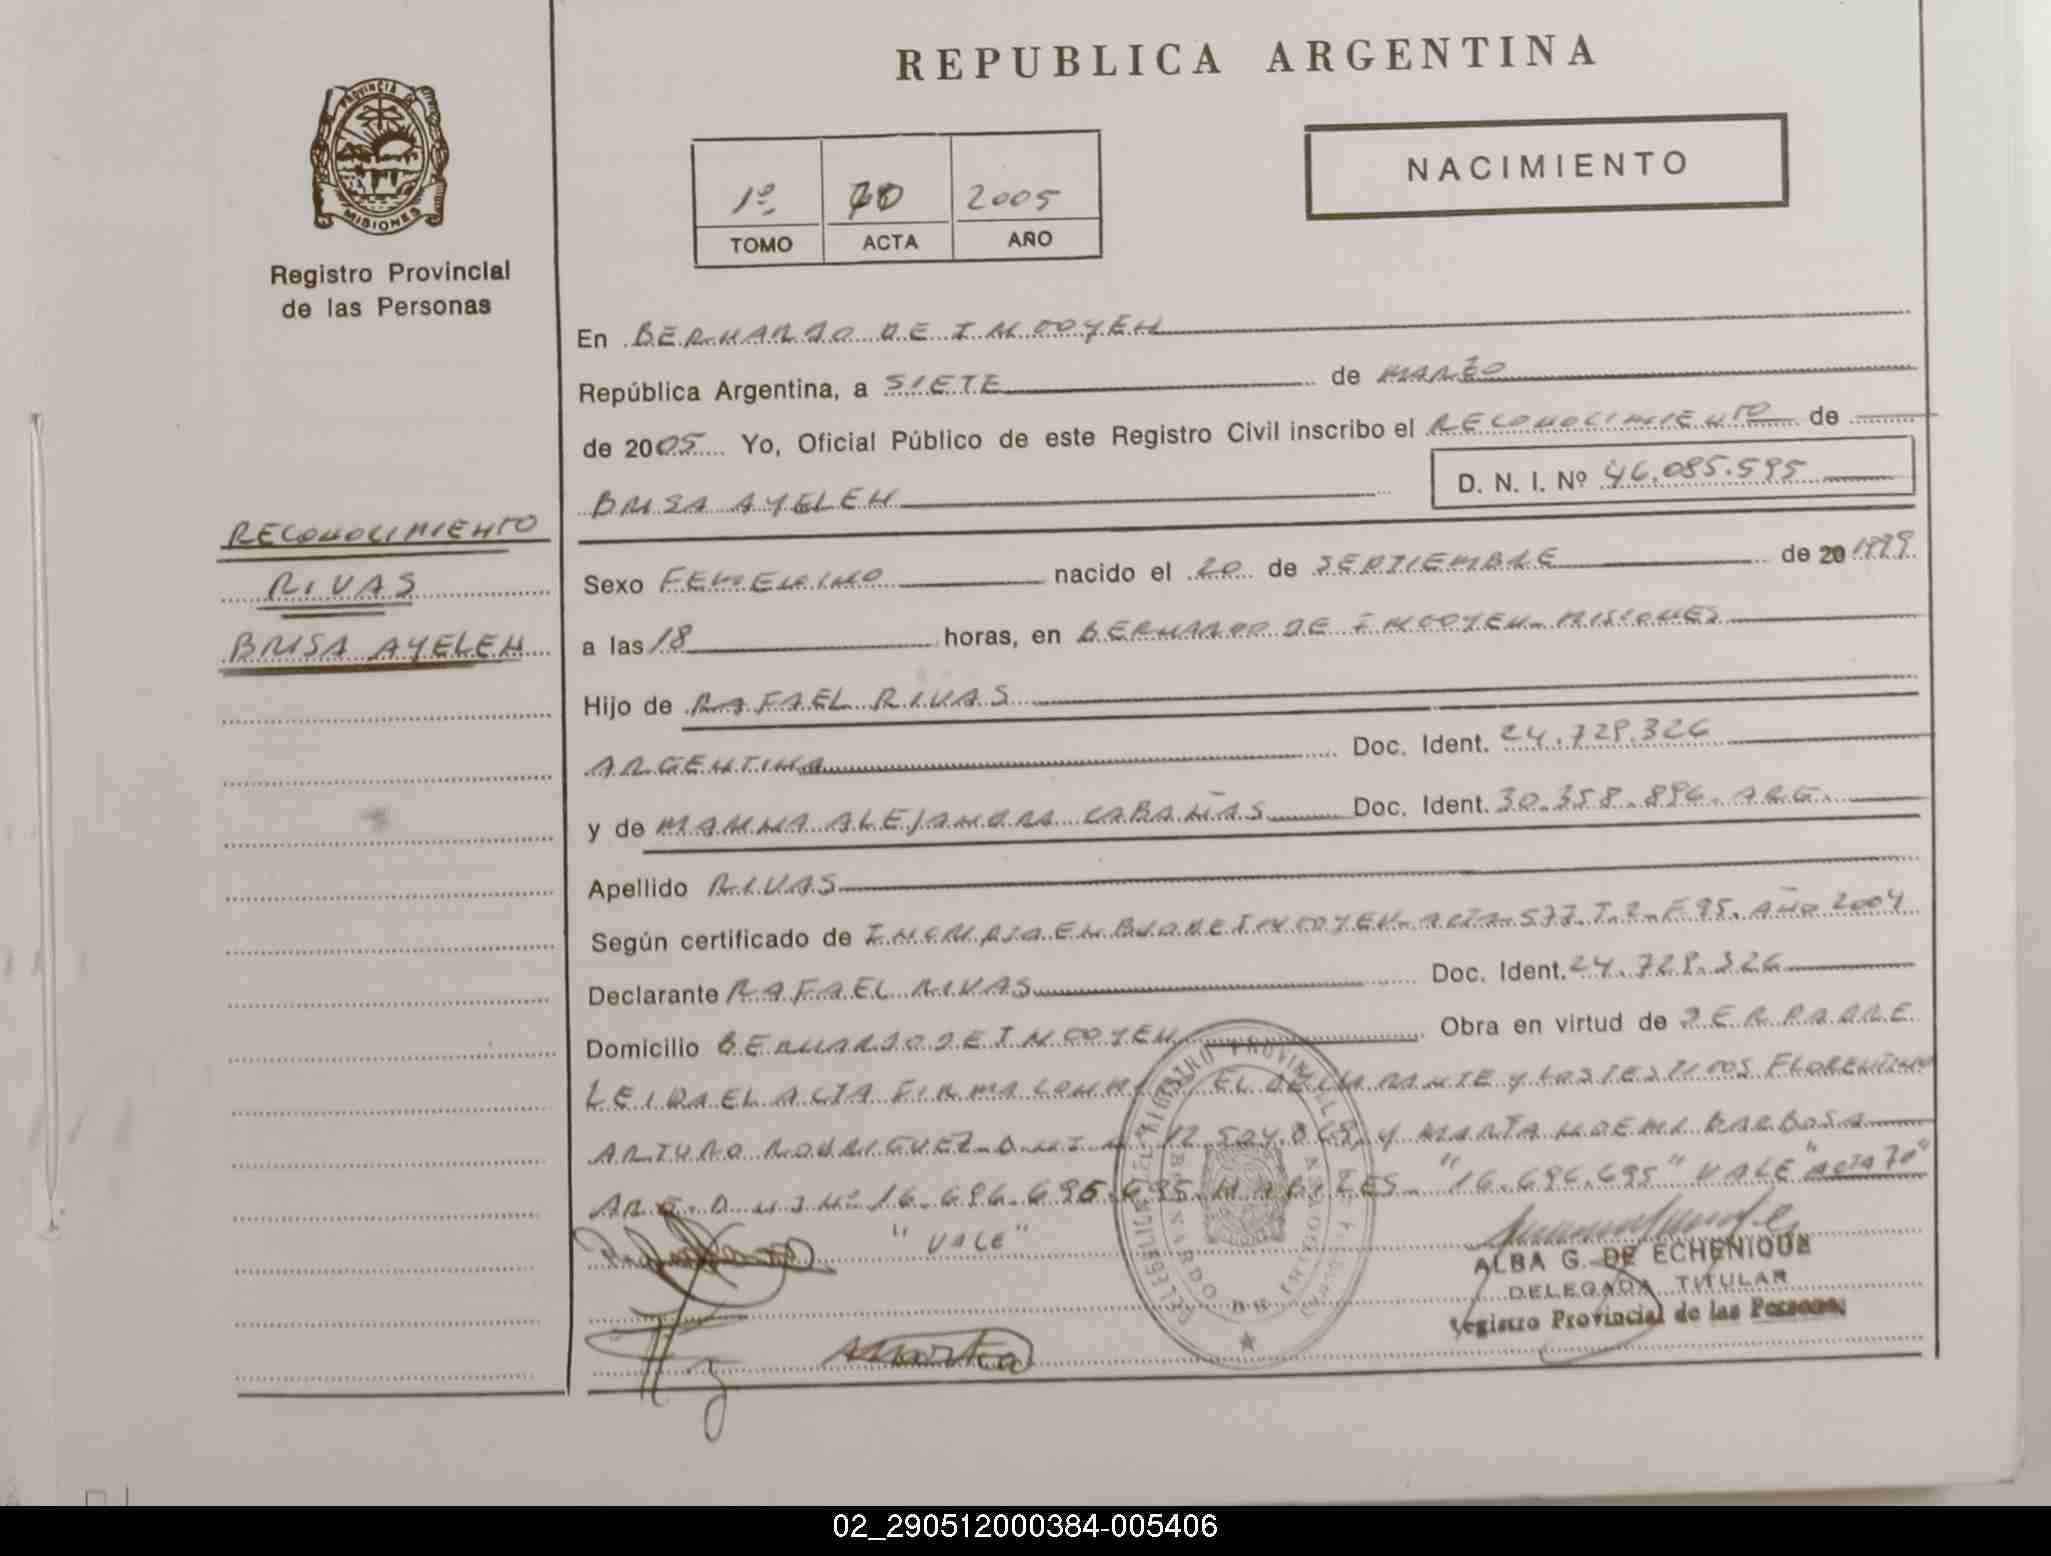 REPUBLICA ARGENTINA
PROVINCIA DE
MISIONES
Registro Provincial
de las Personas
NACIMIENTO
1º 70 2005
TOMO ACTA AÑO
En BERNARDO DE IRIGOYEN
República Argentina, a SIETE de MARZO
de 2005 Yo, Oficial Público de este Registro Civil inscribo el RECONOCIMIENTO de
BRISA AYELEN D. N. I. Nº 46.085.595
RECONOCIMIENTO
RIVAS
BRISA AYELEN
Sexo FEMENINO nacido el 20 de SEPTIEMBRE de 20 1999
a las 18 horas, en BERNARDO DE IRIGOYEN - MISIONES
Hijo de RAFAEL RIVAS
ARGENTINA Doc. Ident. 24.729.326
y de MARINA ALEJANDRA CABAÑAS Doc. Ident. 30.358.896. ARG.
Apellido RIVAS
Según certificado de INSCRIPTA EN BDO DE IRIGOYEN - ACTA 577. T. 2. F 95. AÑO 2004
Declarante RAFAEL RIVAS Doc. Ident. 24.729.326
Domicilio BERNARDO DE IRIGOYEN Obra en virtud de SER PADRE
LEIDA EL ACTA FIRMA CONMIGO EL DECLARANTE Y LOS TESTIGOS FLORENTINO
ARTURO RODRIGUEZ D.N.I. Nº 12.504.869, Y MARTA NOEMI BARBOSA
ARG. D.N.I Nº 16.696.695.695. HABILES - "16.696.695" VALE "ACTA 70"
"VALE"
ALBA G. DE ECHENIQUE
DELEGADA TITULAR
Registro Provincial de las Personas
Marta
02_290512000384-005406